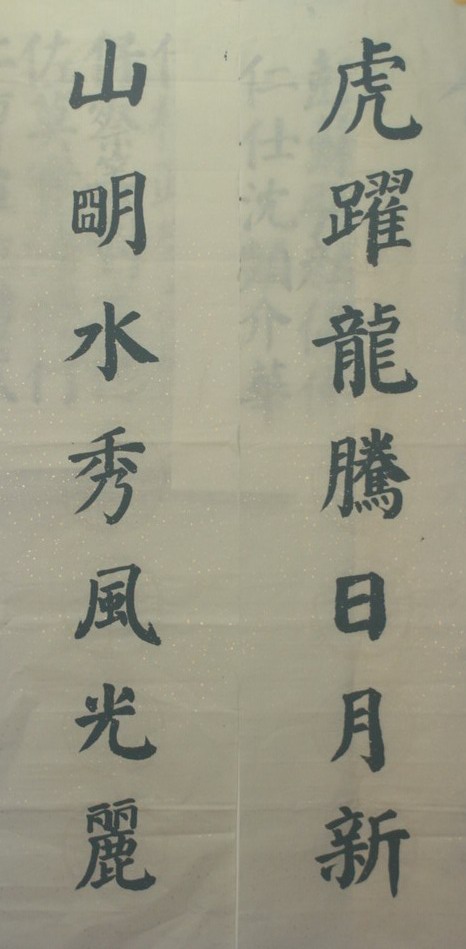 虎躍龍騰日月新
山朙水秀風光麗